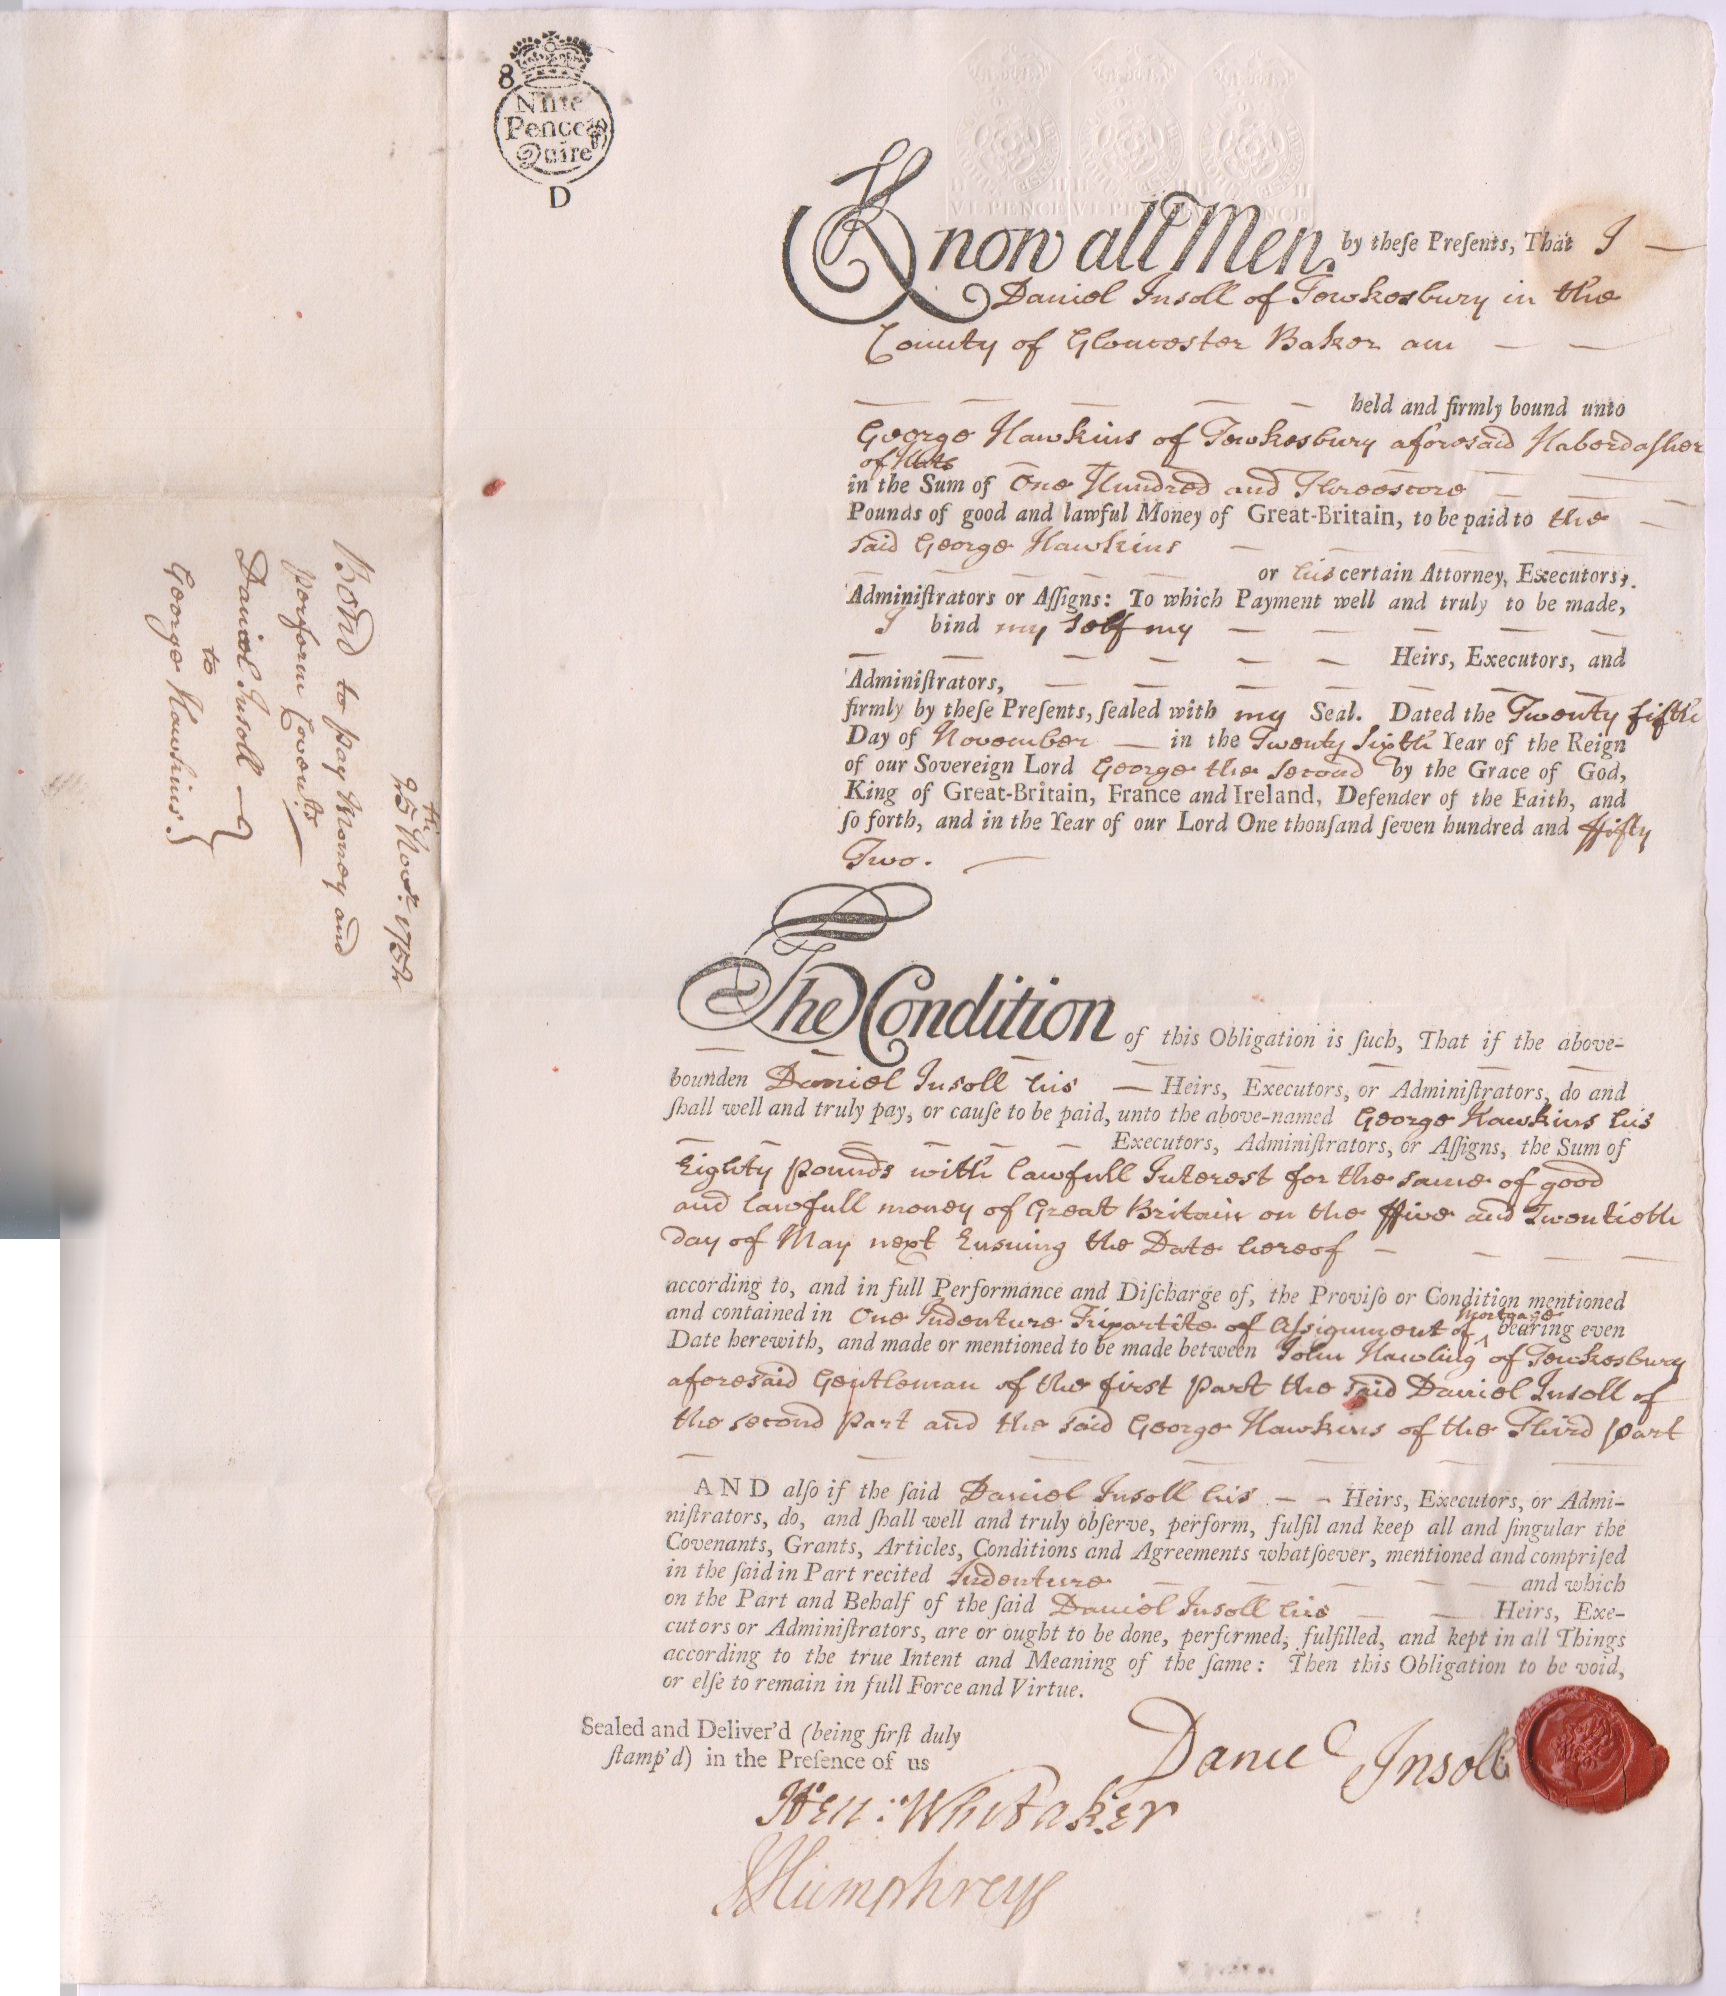 8
Nine
Pence
Quire
D
VI PENCE VI PENCE VI PENCE
Know all Men by theſe Preſents, That I
Daniel Insoll of Tewkesbury in the
County of Gloucester Baker am
held and firmly bound unto
George Hawkins of Tewkesbury aforesaid Haberdasher
of Hats
in the Sum of One Hundred and Threescore
Pounds of good and lawful Money of Great-Britain, to be paid to the
said George Hawkins
or his certain Attorney, Executors,
Adminiſtrators or Aſſigns: To which Payment well and truly to be made,
I bind my self my
Heirs, Executors, and
Adminiſtrators,
firmly by theſe Preſents, ſealed with my Seal. Dated the Twenty fifth
Day of November in the Twenty Sixth Year of the Reign
of our Sovereign Lord George the Second by the Grace of God,
King of Great-Britain, France and Ireland, Defender of the Faith, and
ſo forth, and in the Year of our Lord One thouſand ſeven hundred and ffifty
Two.
The Condition of this Obligation is ſuch, That if the above-
bounden Daniel Insoll his Heirs, Executors, or Adminiſtrators, do and
ſhall well and truly pay, or cauſe to be paid, unto the above-named George Hawkins his
Executors, Adminiſtrators, or Aſſigns, the Sum of
Eighty pounds with lawfull Interest for the same of good
and lawfull money of Great Britain on the ffive and Twentieth
day of May next Ensuing the Date hereof
according to, and in full Performance and Diſcharge of, the Proviſo or Condition mentioned
and contained in One Indenture Tripartite of Assignment of Mortgage bearing even
Date herewith, and made or mentioned to be made between John Hawling of Tewkesbury
aforesaid Gentleman of the first part the said Daniel Insoll of
the second part and the said George Hawkins of the Third part
AND alſo if the ſaid Daniel Insoll his Heirs, Executors, or Admi-
niſtrators, do, and ſhall well and truly obſerve, perform, fulfil and keep all and ſingular the
Covenants, Grants, Articles, Conditions and Agreements whatſoever, mentioned and compriſed
in the ſaid in Part recited Indenture and which
on the Part and Behalf of the ſaid Daniel Insoll his Heirs, Exe-
cutors or Adminiſtrators, are or ought to be done, performed, fulfilled, and kept in all Things
according to the true Intent and Meaning of the ſame: Then this Obligation to be void,
or elſe to remain in full Force and Virtue.
Sealed and Deliver'd (being firſt duly
ſtamp'd) in the Preſence of us
Daniel Insoll
Hen: Whitaker
Humphreys
25th Novr. 1752
Bond to pay Money and
perform Covents
Daniel Insoll
to
George Hawkins